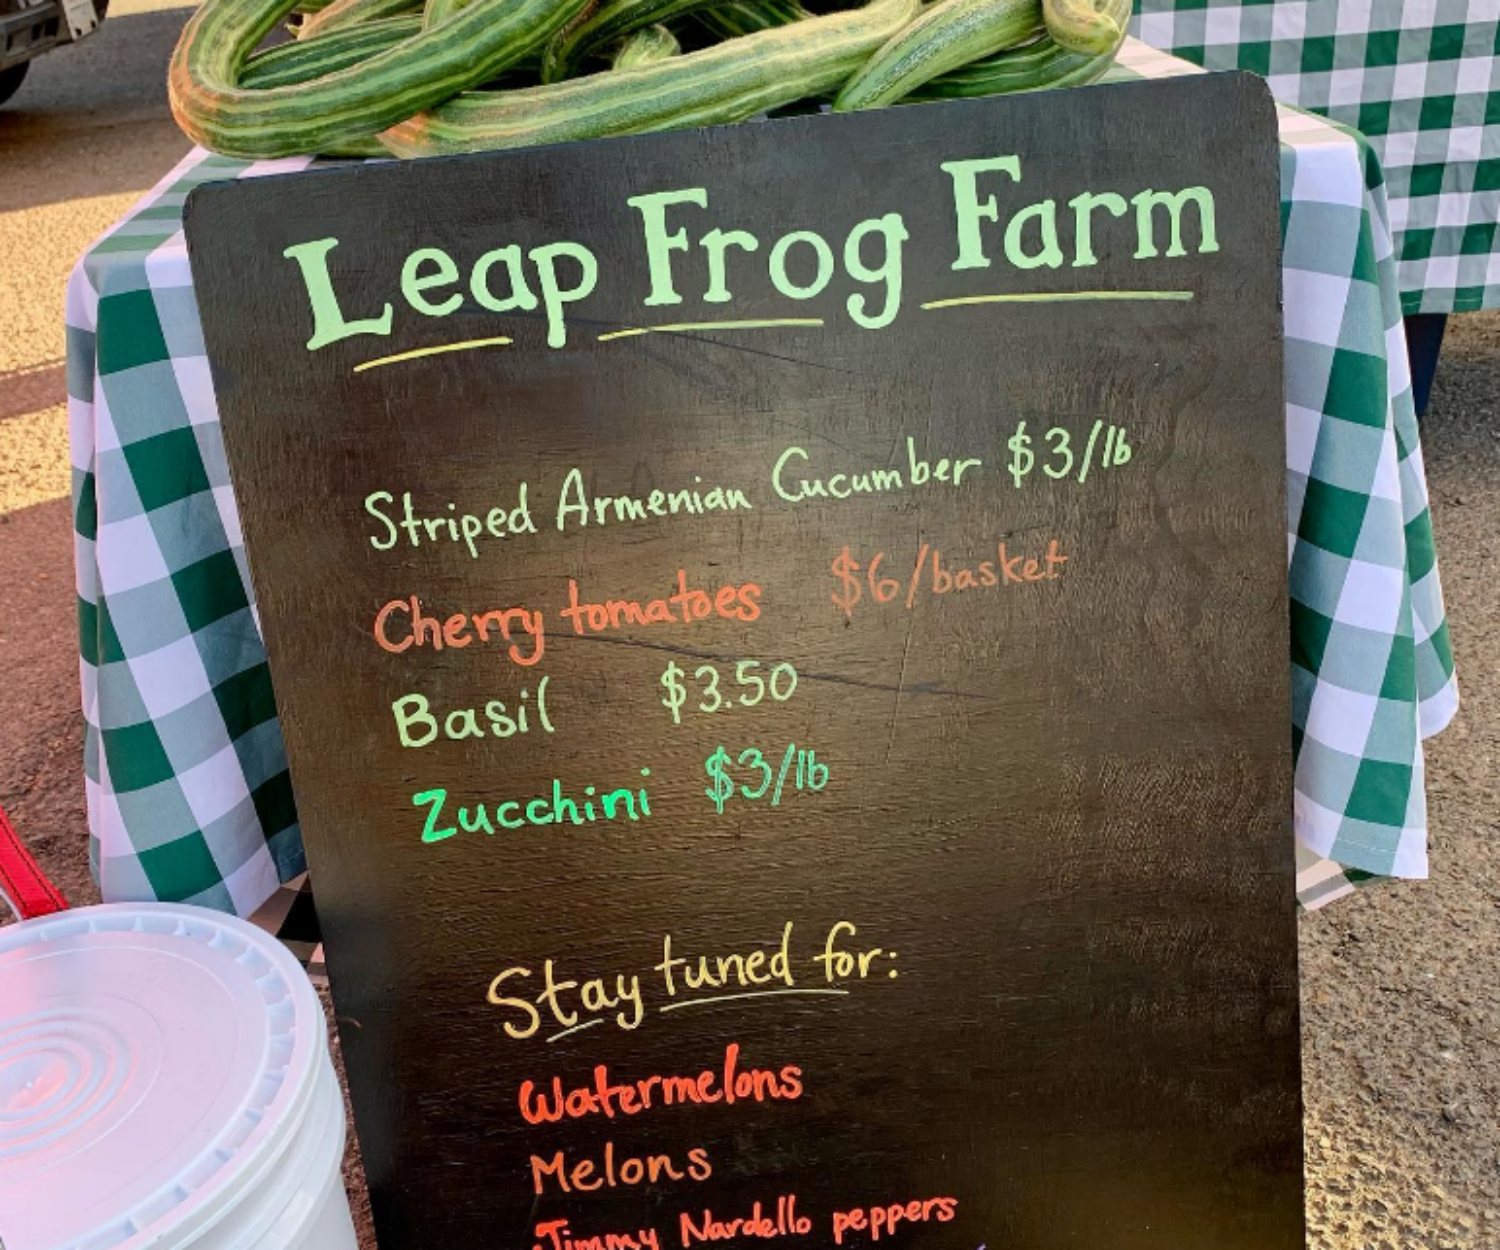 Leap Frog Farm
Striped Armenian Cucumber $3/lb
Cherry tomatoes $6/basket
Basil $3.50
Zucchini $3/lb
Stay tuned for:
Watermelons
Melons
Jimmy Nardello peppers